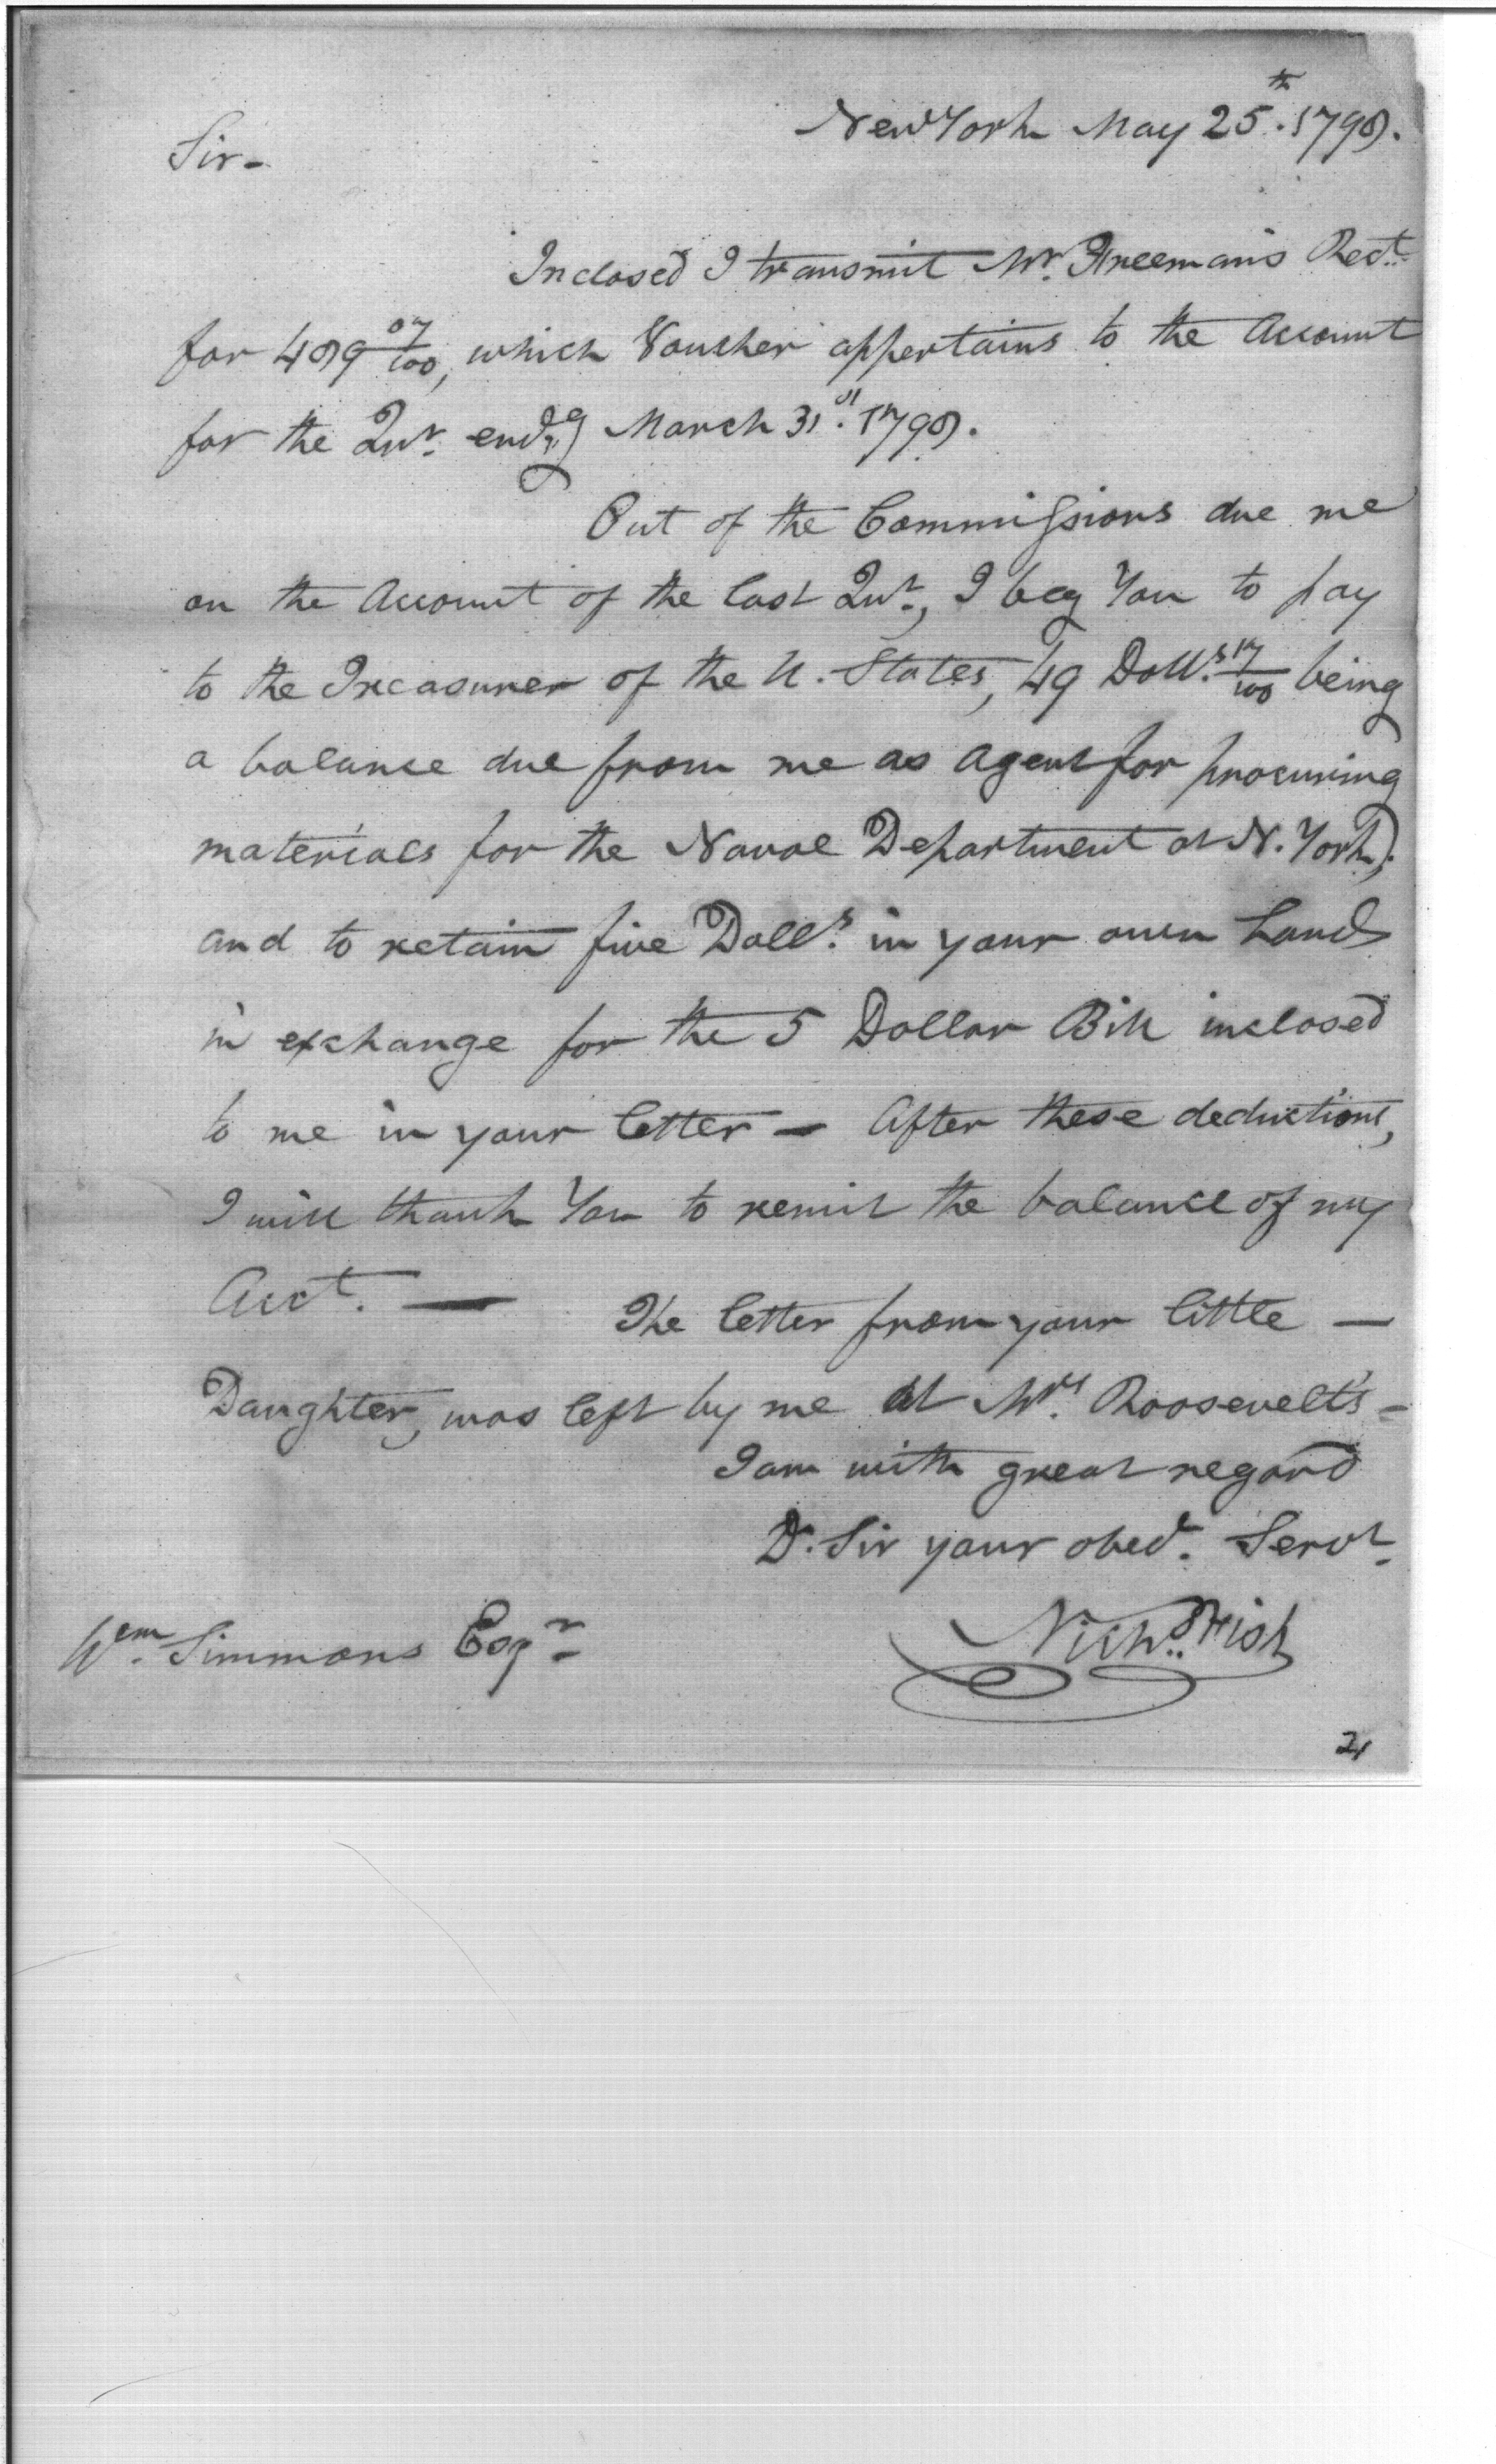 New York May 25th. 1798.
Sir-
Inclosed I transmit Mr. Freeman's Rect.
for 489 07/100, which Voucher appertains to the Account
for the Qur. endg. March 31st. 1798.
Out of the Commissions due me
on the Account of the last Qur., I beg You to pay
to the Treasurer of the U. States, 49 Dolls. 17/100 being
a balance due from me as agent for procuring
materials for the Naval Department at N. York;
and to retain five Dolls. in your own hands
in exchange for the 5 Dollar Bill inclosed
to me in your letter — After these deductions,
I will thank You to remit the balance of my
Acct. — The letter from your little —
Daughter, was left by me at Mrs. Roosevelt's -
I am with great regard
Dr. Sir your obedt. Servt.
Nichs. Fish
Wm. Simmons Esqr.
21